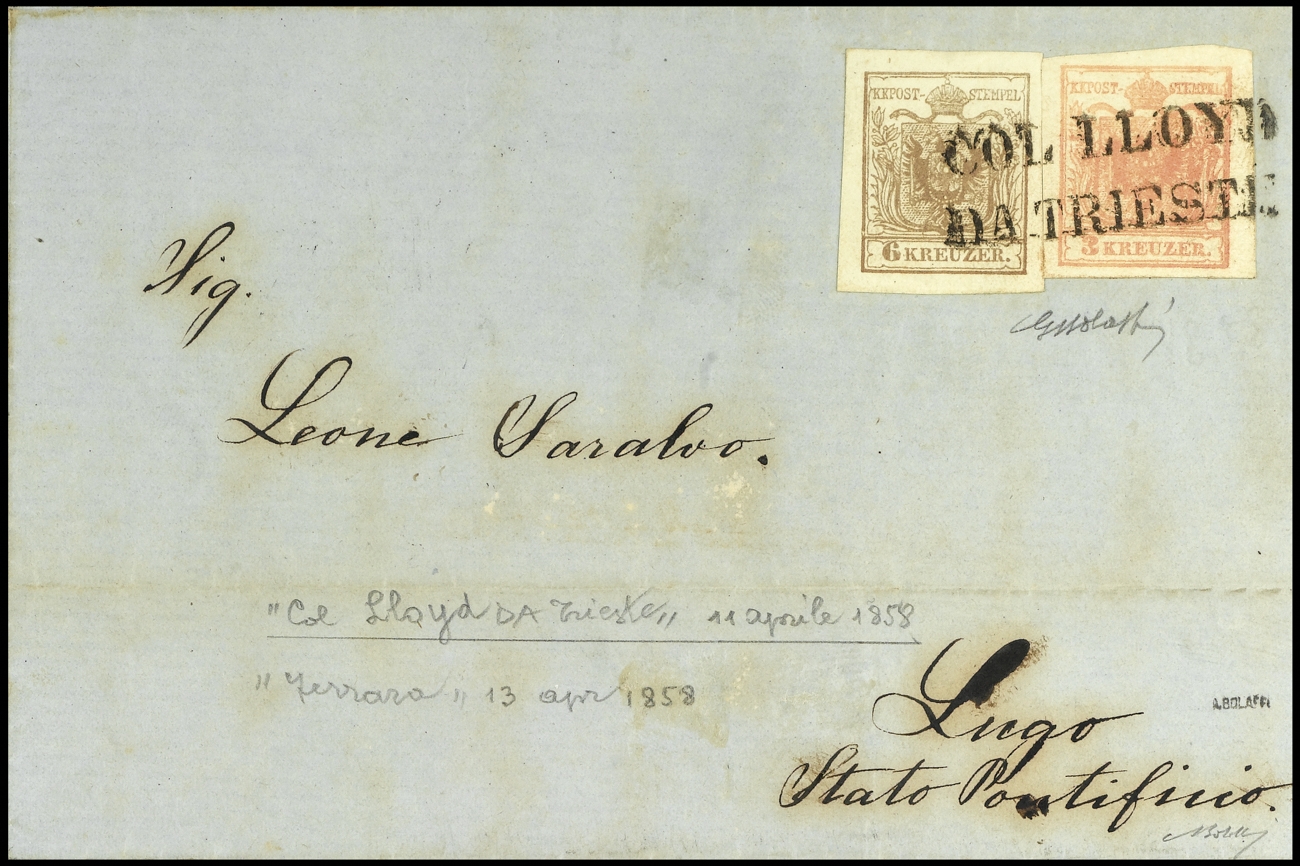 KKPOST-STEMPEL
6 KREUZER.
KKPOST-STEMPEL
3 KREUZER.
COL LLOYD
DA TRIESTE
Sig.
Leone Saralvo.
"Col Lloyd DA Trieste" 11 aprile 1858
"Ferrara" 13 apr 1858
Lugo
A. BOLAFFI
Stato Pontificio.